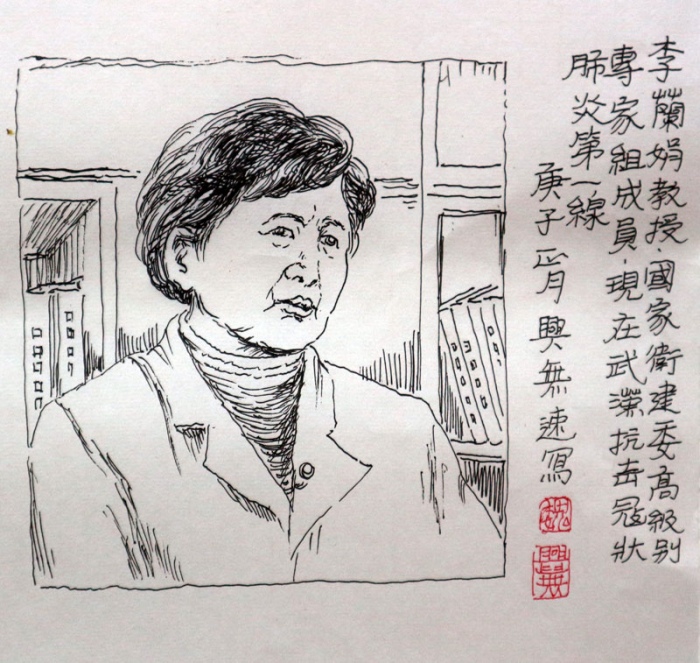 李蘭娟教授·國家衛建委高級别
專家組成員·現在武漢抗击冠狀
肺炎第一線
庚子正月興無速寫
魏
興無